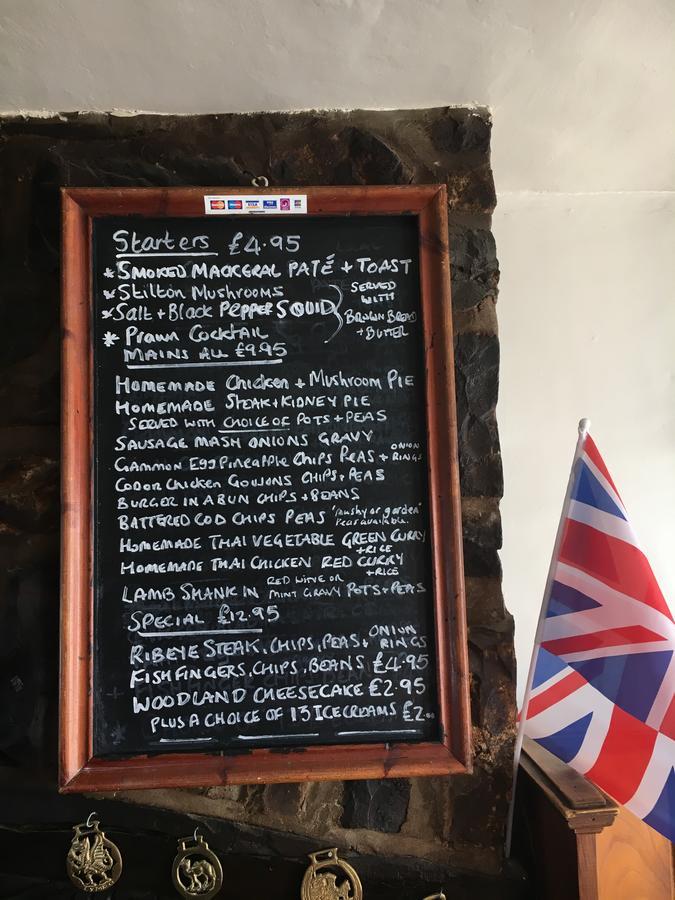 Starters £4.95
* SMOKED MACKGRAL PATÉ + TOAST
* Stilton Mushrooms
* Salt + Black PEPPER SQUID
* Prawn Cocktail
SERVED
WITH
BROWN BREAD
+ BUTTER
MAINS ALL £9.95
HOMEMADE Chicken + Mushroom PIE
HOMEMADE STEAK + KIDNEY PIE
SERVED WITH CHOICE OF POTS + PEAS
SAUSAGE MASH ONIONS GRAVY
Gammon Egg Pineapple Chips PEAS + ONION RINGS
Chicken GOUJONS CHIPS + PEAS
BURGER IN A BUN CHIPS + BEANS
BATTERED COD CHIPS PEAS "mushy or garden"
Peas available.
HOMEMADE THAI VEGETABLE GREEN CURRY
+ RICE
HOMEMADE THAI CHICKEN RED CURRY
+ RICE
LAMB SHANK IN RED WINE OR MINT GRAVY POTS + PEAS
SPECIAL £12.95
RIBEYE STEAK, CHIPS, PEAS + ONION RINGS
FISHFINGERS, CHIPS, BEANS £4.95
WOODLAND CHEESECAKE £2.95
PLUS A CHOICE OF 13 ICECREAMS £2.00